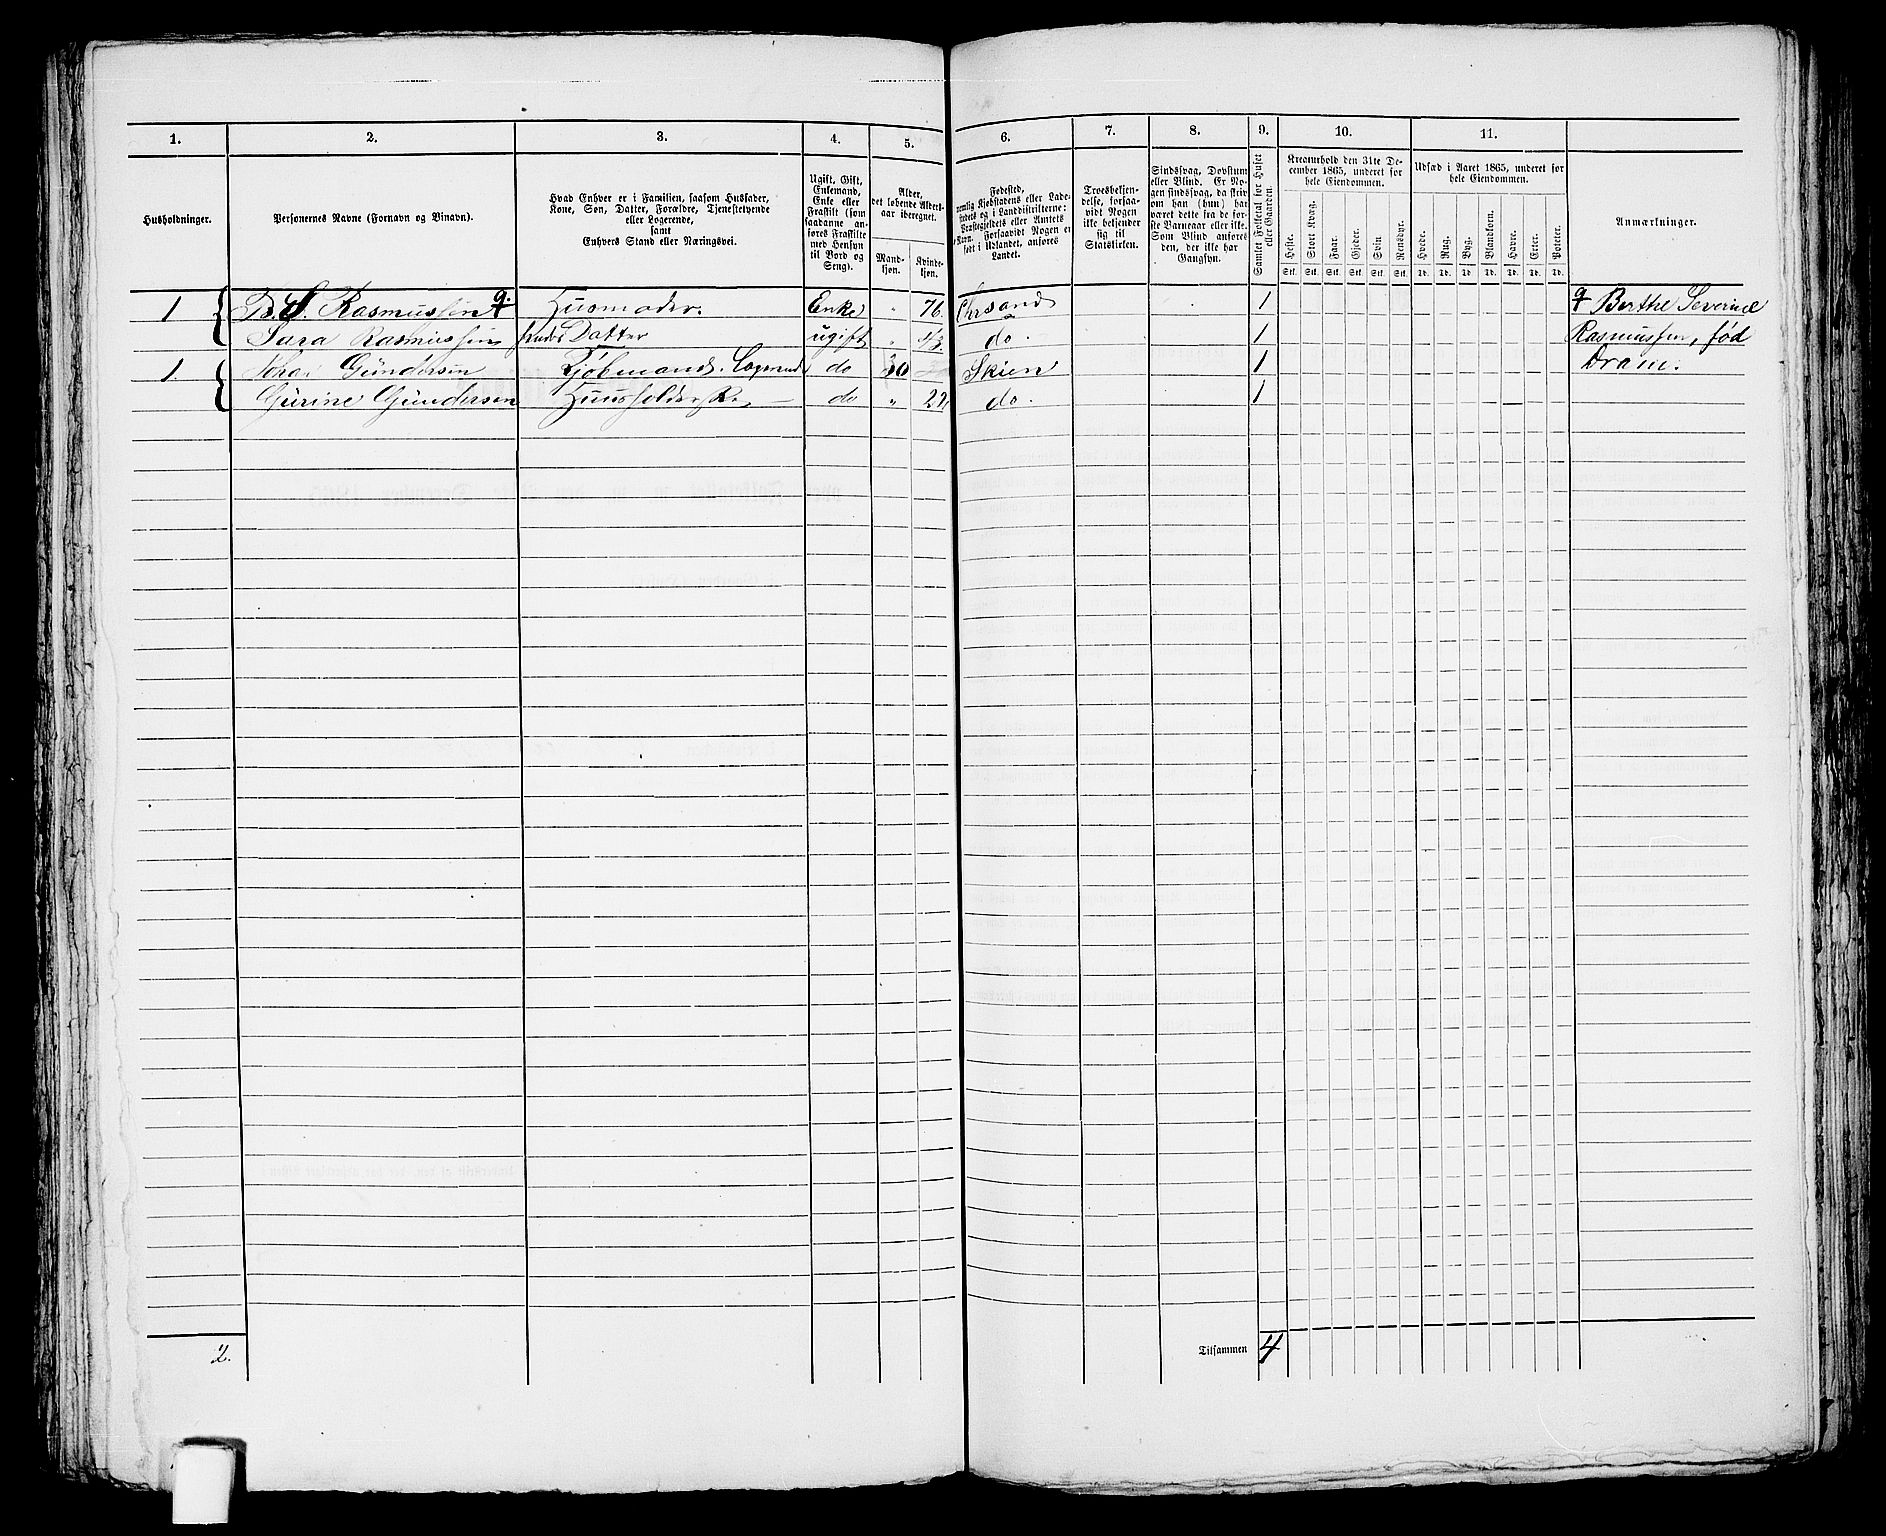 1. 2. 3. 4. 5. 6. 7. 8. 9. 10. 11.
Husholdninger.
Personernes Navne (Fornavn og Binavn).
Hvad Enhver er i Familien, saasom Husfader,
Kone, Søn, Datter, Forældre, Tjenestetyende
eller Logerende,
samt
Enhvers Stand eller Næringsvei.
Ugift, Gift,
Enkemand,
Enke eller
Fraskilt (som
saadanne an-
føres Fraskilte
med Hensyn
til Bord og
Seng).
Alder,
det løbende Alders-
aar iberegnet.
Mand-
kjøn.
Kvinde-
kjøn.
Fødested,
nemlig Kjøbstadens eller Lade-
stedets og i Landdistrikterne:
Præstegjeldets eller Amtets
Navn. Forsaavidt Nogen er
født i Udlandet, anføres
Landet.
Troesbekjen-
delse, forsaa-
vidt Nogen
ikke bekjender
sig til
Statskirken.
Sindssvag, Døvstum
eller Blind. Er No-
gen sindssvag, da skriv
om han (hun) har
været dette fra de før-
ste Barneaar eller ikke.
Som Blind anføres
den, der ikke har
Gangsyn.
Samlet Folketal for Huset
eller Gaarden.
Kreaturhold den 31te De-
cember 1865, underet for
hele Eiendommen.
Heste. Stort Kvæg. Faar. Gjeder. Svin. Rensdyr.
Stk. Stk. Stk. Stk. Stk. Stk.
Udsæd i Aaret 1865, underet for
hele Eiendommen.
Hvede. Rug. Byg. Blandkorn. Havre. Erter. Poteter.
Td. Td. Td. Td. Td. Td. Td.
Anmærkninger.
1 B. S. Rasmussen Husmoder. Enke " 76. Chrsand 1 Berthe Severine
Sara Rasmussen hendes Datter ugift " 43. do. 1 Rasmussen, fød
1. Gundersen Kjøbmand. Logerende do 30 Skien 1 Drane.
Gurine Gundersen Huusholderske — do " 22 do. 1
2. Tilsammen 4